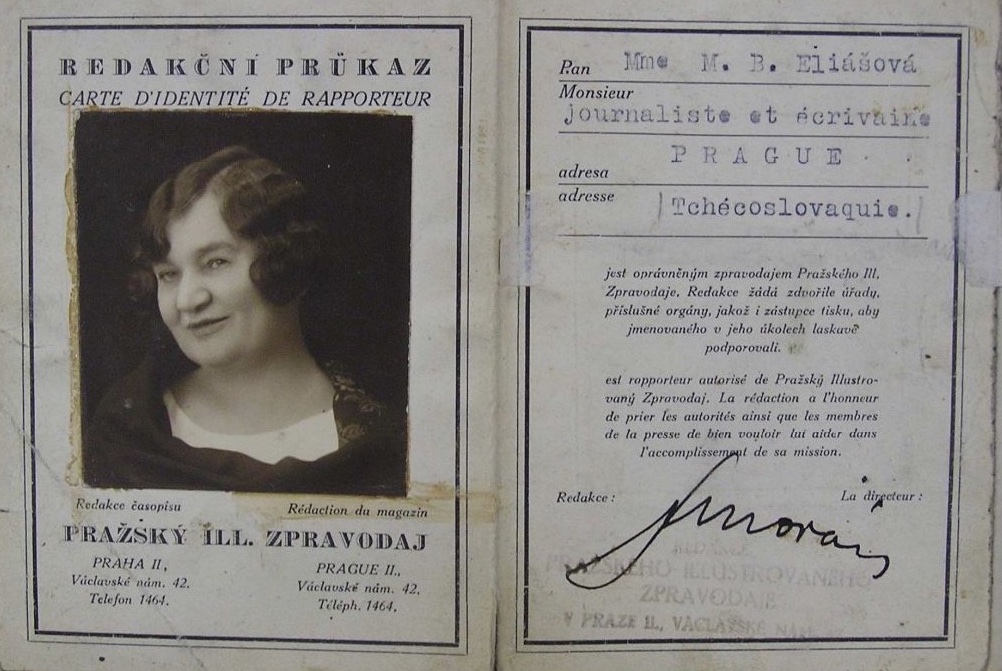 REDAKČNÍ PRŮKAZ
CARTE D'IDENTITÉ DE RAPPORTEUR
Redakce časopisu
Rédaction du magazin
PRAŽSKÝ ILL. ZPRAVODAJ
PRAHA II,
Václavské nám. 42.
Telefon 1464.
PRAGUE II.,
Václavské nám. 42.
Téléph. 1464.
Pan Mme M. B. Eliášová
Monsieur
journaliste et écrivaine
PRAGUE
adresa
adresse Tchécoslovaquie.
jest oprávněným zpravodajem Pražského Ill.
Zpravodaje. Redakce žádá zdvořile úřady,
příslušné orgány, jakož i zástupce tisku, aby
jmenovaného v jeho úkolech laskavě
podporovali.
est rapporteur autorisé de Pražský Illustro-
vaný Zpravodaj. La rédaction a l'honneur
de prier les autorités ainsi que les membres
de la presse de bien vouloir lui aider dans
l'accomplissement de sa mission.
Redakce :
La directeur :
REDAKCE
PRAŽSKÉHO ILLUSTROVANÉHO
ZPRAVODAJE
V PRAZE II., VÁCLAVSKÉ